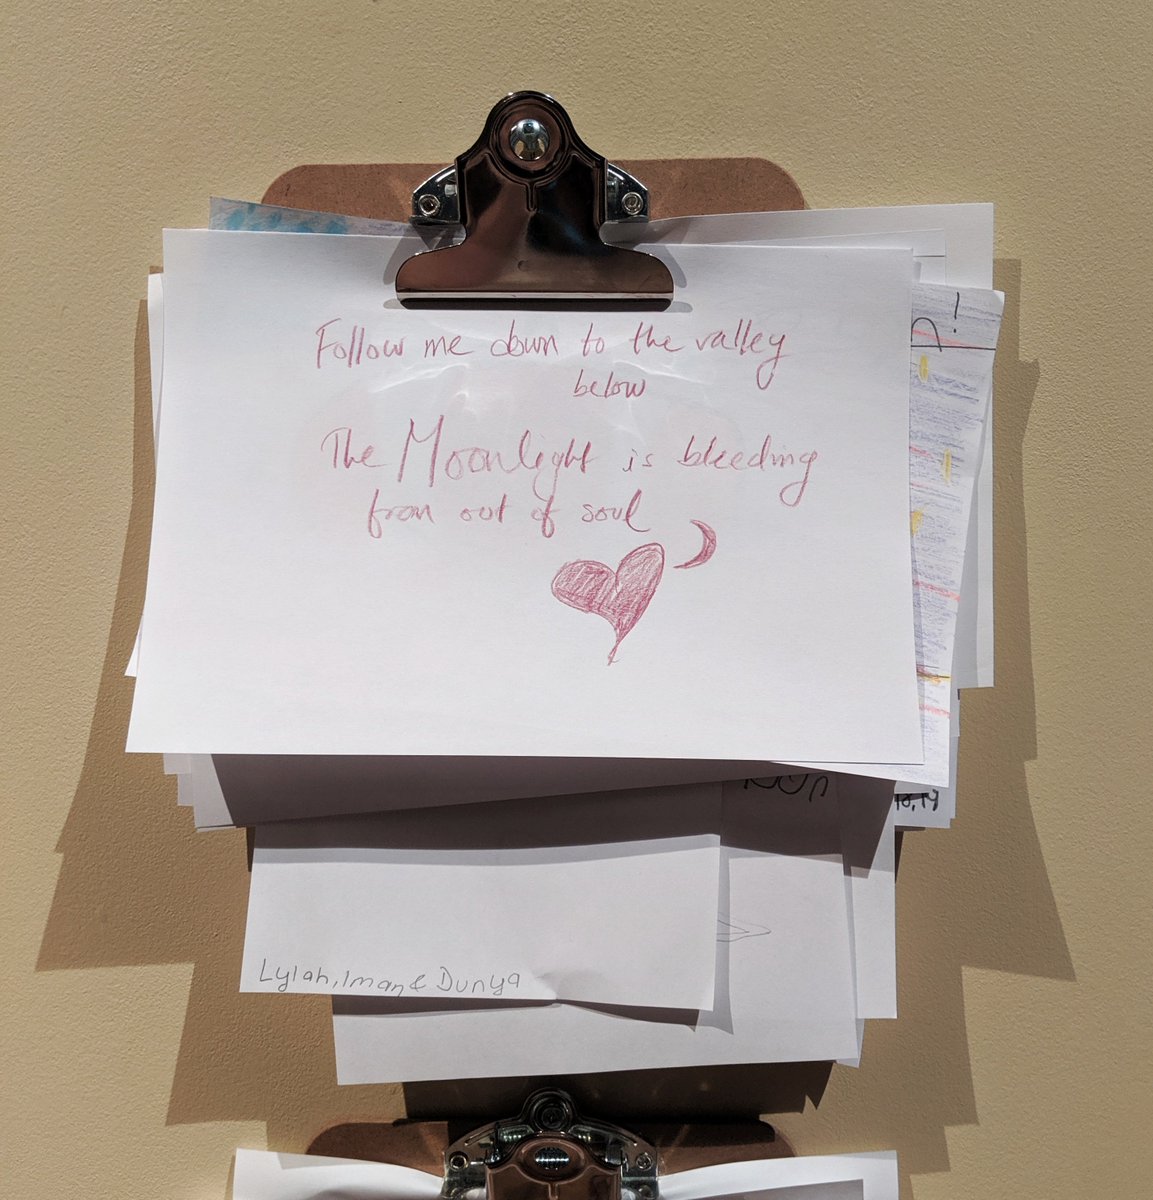 Follow me down to the valley
below
The Moonlight is bleeding
from out of soul
18.19
Lylah, Iman & Dunya